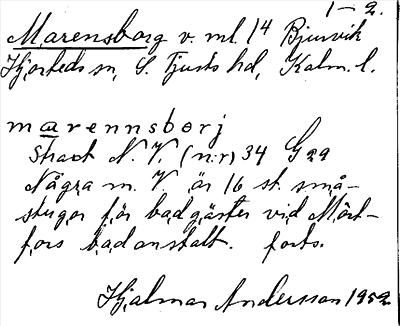 1-2.
Marensborg v. ml. 14 Bjurvik
Hjorteds sn, S. Tjusts hd, Kalm. l.
marennsborj
Strax N. V. (n:r) 34 G29
Några m. V. är 16 st. små-
stugor för badgäster vid Mört-
fors badanstalt. forts.
Hjalmar Andersson 1952